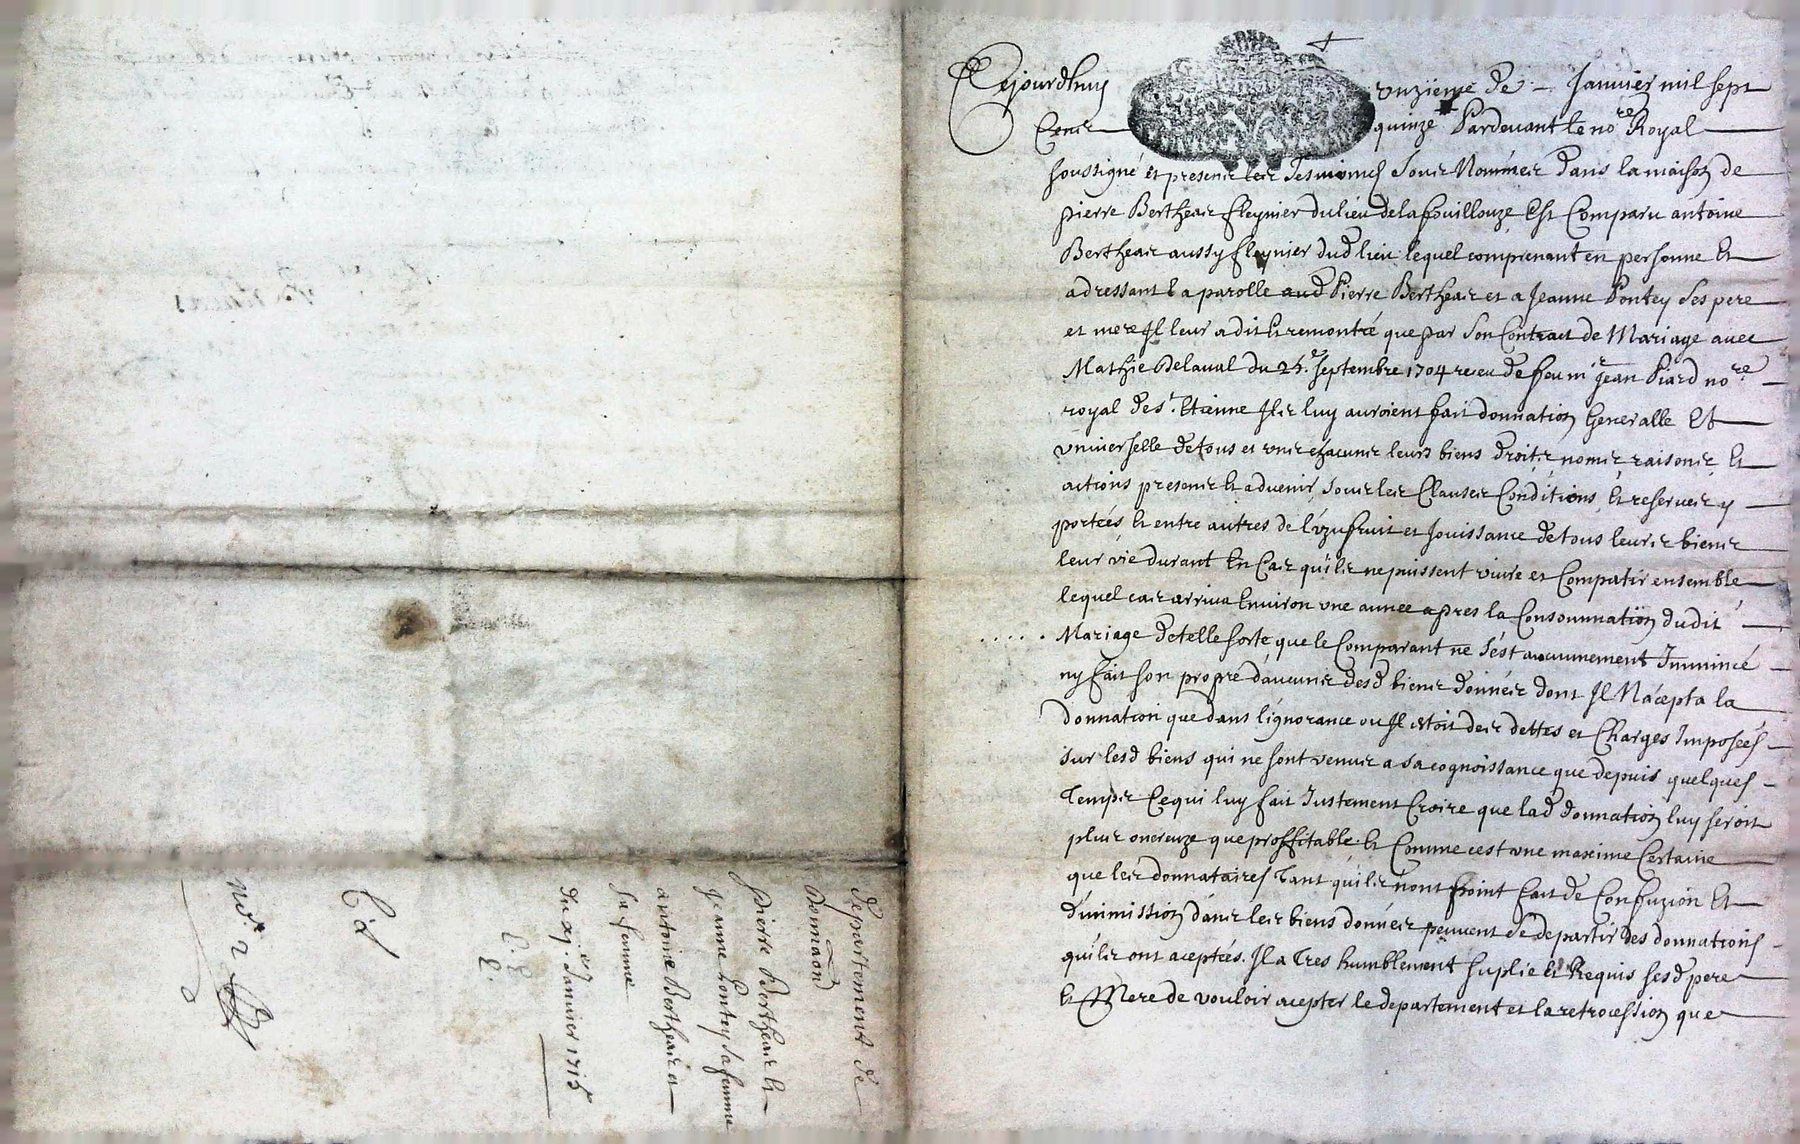 Cejourdhuy unzieme de Janvier mil sept
Cens quinze Pardevant le nore Royal
soussigné et presens les Tesmoings Sous Nommés Dans la maison de
pierre Bertheas fleynier du lieu de la fouillouze Est Comparu antoine
Bertheas aussy fleynier dud lieu lequel comprenant en personne Et
adressant la parolle aud Pierre Bertheas et a Jeanne Pontey Ses pere
et mere Il leur a dit Et remontré que par Son Contract de Mariage avec
Mathie Delaval du 25.e Septembre 1704 receu de feu mr Jean Piard nore
royal de st. Etienne Ils luy auroient fait donnation Generalle Et
universelle de tous et uns chacuns leurs biens droits noms raisons Et
actions presens Et advenir Sous les Clauses Conditions Et reserves y
portées Et entre autres de l'uzufruit et Jouissance de tous leurs biens
leur vie durant En Cas quils ne puissent vivre et Compatir ensemble
lequel cas arriva Environ une année apres la Consommation dudit
Mariage de telle sorte que le Comparant ne s'est aucunement Immincé
ny fait son propre d'aucuns desd biens donnés dont Il N'acepta la
donnation que dans l'ignorance ou Il Estoit des dettes et Charges Imposées
sur lesd biens qui ne sont venus a sa cognoissance que depuis quelques
Temps Ce qui luy fait Justement Croire que lad donnation luy seroit
plus onereuze que proffitable Et Comme cest une maxime Certaine
que les donnataires Tant quils n'ont point fait de Confuzion Et
d'inmission dans les biens donnés peuvent Se departir des donnations
quils ont aceptées. Il a Tres humblement suplié Et Requis sesd pere
Et Mere de vouloir acepter le departement et la retrocession que
departement de
donnaõn
Pierre Bertheas Et
Jeanne Pontey sa femme
antoine Bertheas et
Sa femme
Du xj.e Janvier 1715